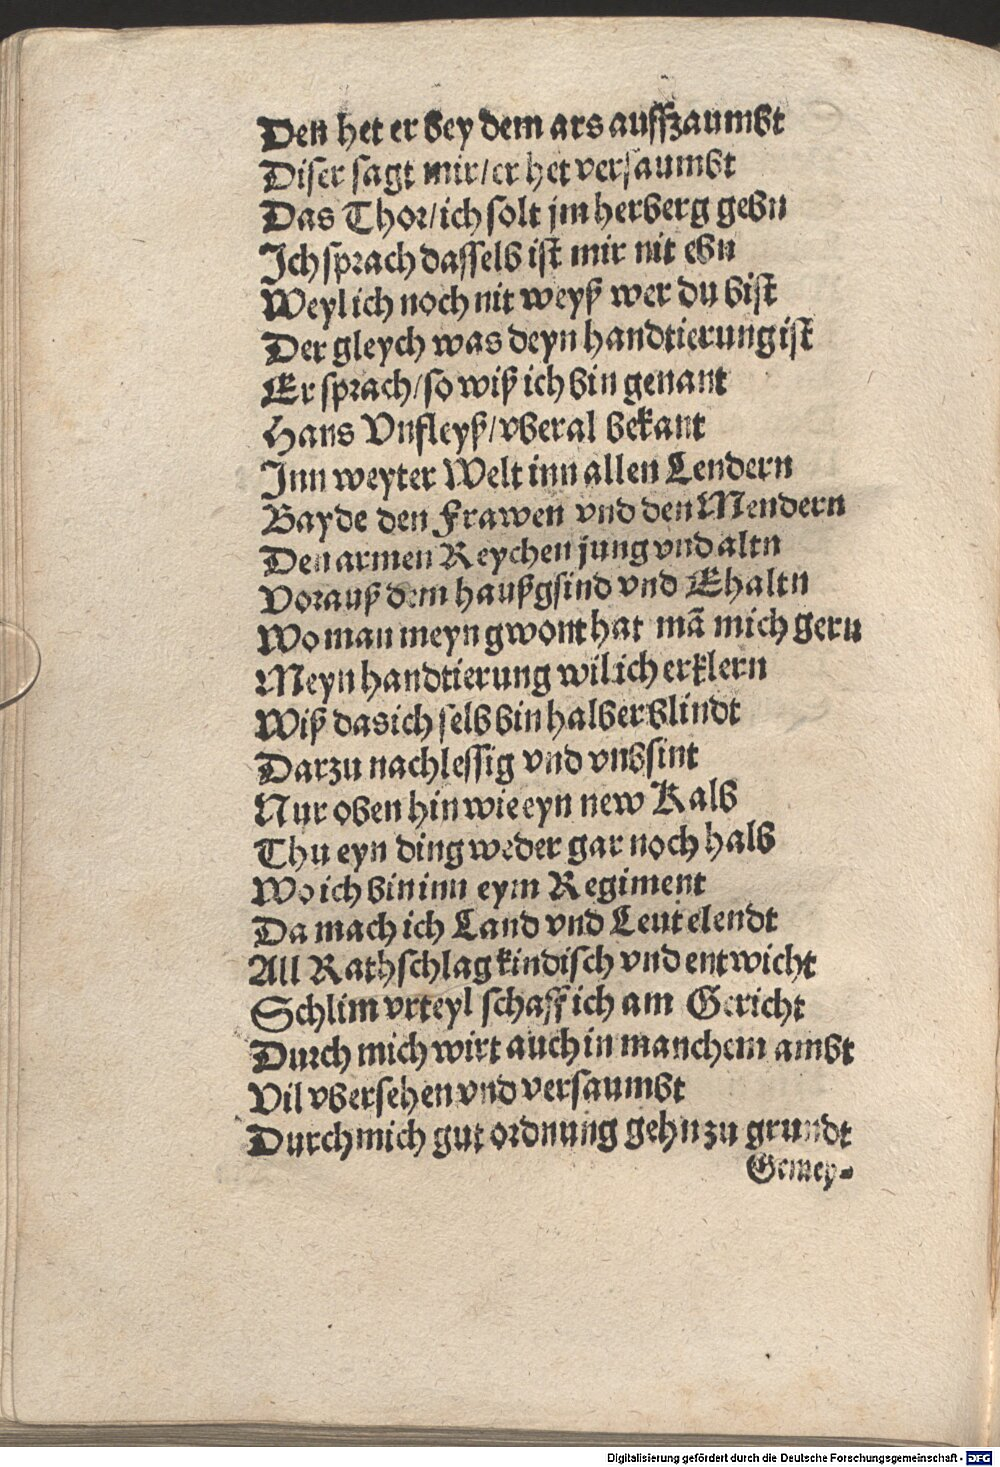 Den het er bey dem ars auffzaumbt
Diser sagt mir/er het versaumbt
Das Thor/ich solt jm herberg gebn
Ich sprach dasselb ist mir nit ebn
Weyl ich noch nit weyß wer du bist
Der gleych was deyn handtierung ist
Er sprach/so wiß ich bin genant
Hans Vnfleyß/vberal bekant
Inn weyter Welt inn allen Lendern
Bayde den Frawen vnd den Mendern
Den armen Reychen jung vnd altn
Vorauß dem haußgsind vnd Ehaltn
Wo man meyn gwont hat mã mich gern
Meyn handtierung wil ich erklern
Wiß das ich selb bin halber blindt
Darzu nachlessig vnd vnbsint
Nur oben hin wie eyn new Kalb
Thu eyn ding weder gar noch halb
Wo ich bin inn eym Regiment
Da mach ich Land vnd Leut elendt
All Rathschlag kindisch vnd entwicht
Schlim vrteyl schaff ich am Gericht
Durch mich wirt auch in manchem ambt
Vil vbersehen vnd versaumbt
Durch mich gut ordnung gehn zu grundt
Gemey-
Digitalisierung gefördert durch die Deutsche Forschungsgemeinschaft - DFG